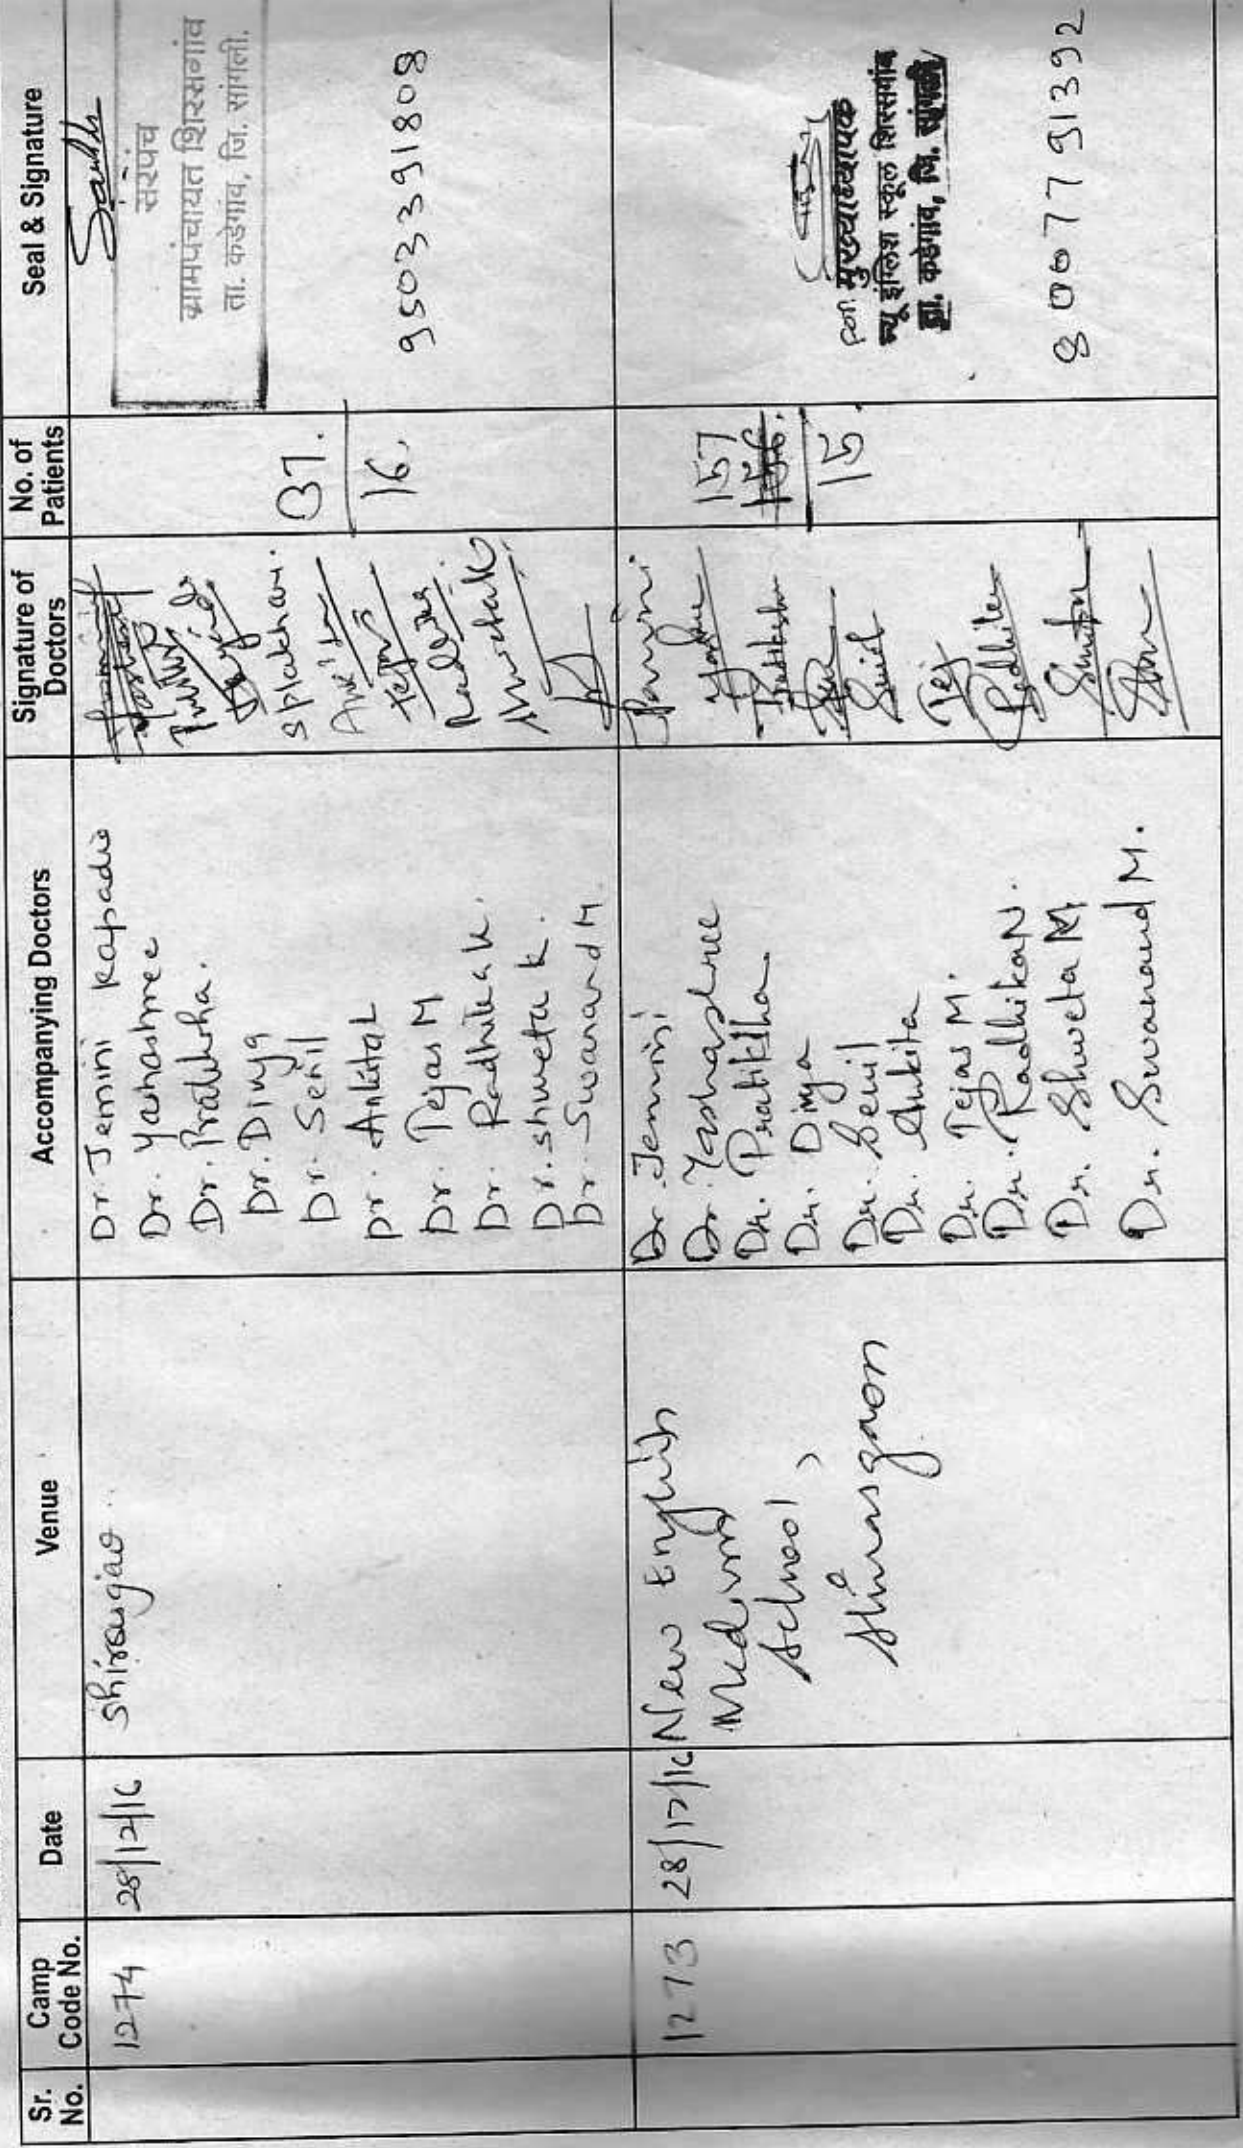 Sr. No.
Camp Code No.
Date
Venue
Accompanying Doctors
Signature of Doctors
No. of Patients
Seal & Signature
1274
28/12/16
Shirasgao
Dr. Jemini Kapadia
Dr. Yashashree
Dr. Pratiksha.
Dr. Divya
Dr. Senil
Dr. Ankita L
Dr. Tejas M
Dr. Radhika K.
Dr. Shweta K.
Dr. Swanand M.
splakhani.
Tejas
Radhika
Shweta K
37.
16.
सरपंच
ग्रामपंचायत शिरसगांव
ता. कडेगांव, जि. सांगली.
9503391808
1273
28/12/16
New English
Medium
School,
Shirasgaon
Dr. Jemini
Dr. Yashashree
Dr. Pratiksha
Dr. Divya
Dr. Senil
Dr. Ankita
Dr. Tejas M.
Dr. Radhika N.
Dr. Shweta M
Dr. Swanand M.
Jemini
Pratiksha
Senil
Tej
Radhika
157
156.
15.
मुख्याध्यापक
न्यू इंग्लिश स्कूल शिरसगांव
ता. कडेगांव, जि. सांगली
8007791392